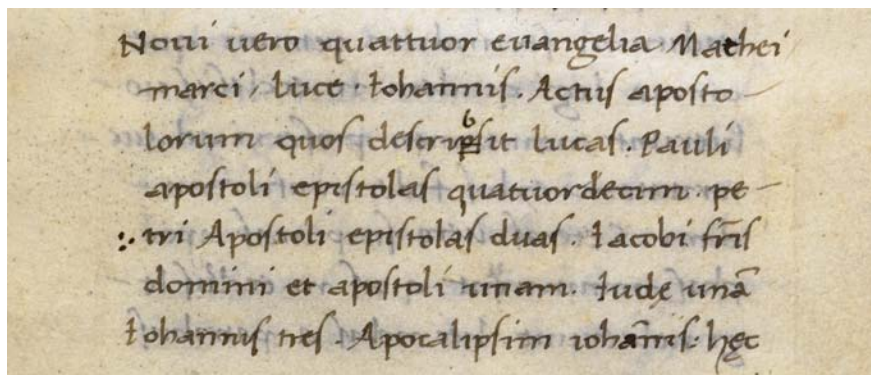 Noui uero quattuor euangelia Mathei
marci. luce. Iohannis. Actus aposto
lorum quos descripsit lucas. Pauli
apostoli epistolas quatuordecim. pe
tri Apostoli epistolas duas. Iacobi fr̄is
domini et apostoli unam. Iudę unā
Iohannis tres. Apocalipsim iohānis. hęc